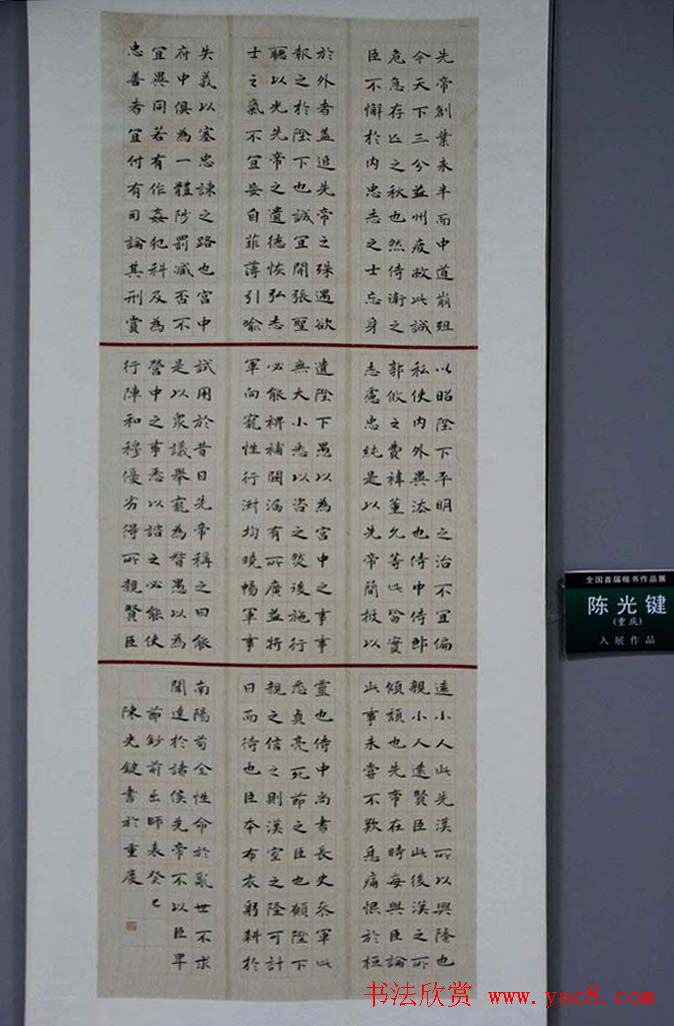 先帝創業未半而中道崩殂
今天下三分益州疲敝此誠
危急存亡之秋也然侍衛之
臣不懈於內忠志之士忘身
於外者蓋追先帝之殊遇欲
報之於陛下也誠宜開張聖
聽以光先帝之遺德恢弘志
士之氣不宜妄自菲薄引喻
失義以塞忠諫之路也宮中
府中俱為一體陟罰臧否不
宜異同若有作姦犯科及為
忠善者宜付有司論其刑賞
以昭陛下平明之治不宜偏
私使內外異法也侍中侍郎
郭攸之費禕董允等此皆實
志慮忠純是以先帝簡拔以
遺陛下愚以為宮中之事事
無大小悉以咨之然後施行
必能裨補闕漏有所廣益將
軍向寵性行淑均曉暢軍事
試用於昔日先帝稱之曰能
是以眾議舉寵為督愚以為
營中之事悉以諮之必能使
行陣和穆優劣得所親賢臣
遠小人此先漢所以興隆也
親小人遠賢臣此後漢之所
傾頹也先帝在時每與臣論
此事未嘗不歎息痛恨於桓
靈也侍中尚書長史參軍此
悉貞亮死節之臣也願陛下
親之信之則漢室之隆可計
日而待也臣本布衣躬耕於
南陽苟全性命於亂世不求
聞達於諸侯先帝不以臣卑
節鈔前出師表癸巳
陳光鍵書於重慶
全国首届楷书作品展
陈光键
(重庆)
入展作品
书法欣赏 www.yac8.com